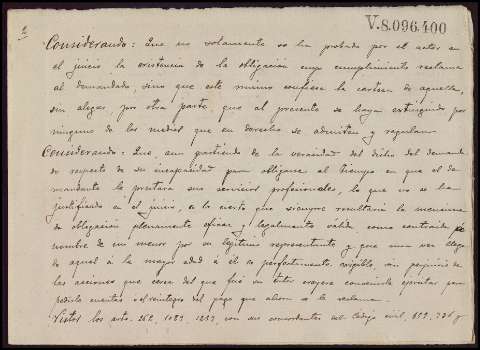 V.8.096.400
2
Considerando: Que no solamente se ha probado por el actor en
el juicio la existencia de la obligación cuyo cumplimiento reclama
al demandado, sino que este mismo confiesa la certeza de aquella,
sin alegar, por otra parte, que al presente se haya extinguido por
ninguno de los medios que en derecho se admiten y regulan.
Considerando: Que, aun partiendo de la veracidad del dicho del demanda-
do respecto de su incapacidad para obligarse al tiempo en que el de-
mandante le prestara sus servicios profesionales, lo que no se ha
justificado en el juicio, es lo cierto que siempre resultaría la
de obligación plenamente eficaz y legalmente válida, como contraída en
nombre de un menor por su legítimo representante y que una vez llega-
do aquel á la mayor edad á él es perfectamente exigible, sin perjuicio de
las acciones que cerca del que fué su tutor crea conveniente ejercitar para
pedirle cuentas ó el reintegro del pago que ahora se le reclama.
Vistos los arts. 262, 1089, 1259, con sus concordantes del Código civil, 359, 736 y